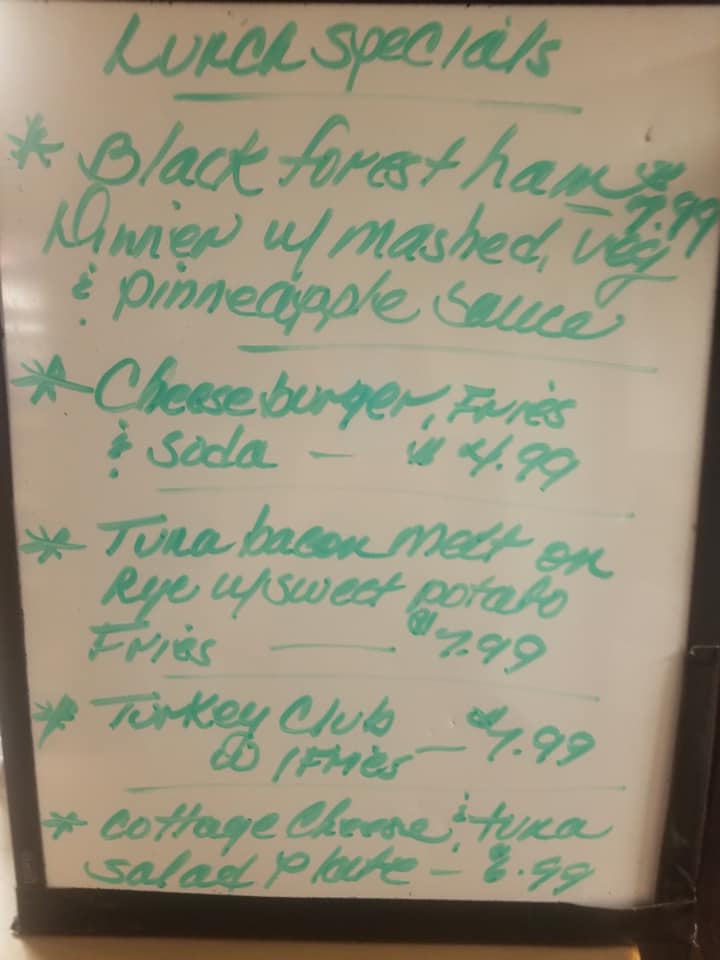 Lunch Specials
* Black forest ham $7.99
Dinner w/ mashed, veg
& pinneapple sauce
* Cheeseburger, Fries
& soda — $4.99
* Tuna bacon melt on
Rye w/sweet potato
Fries — $7.99
* Turkey Club
w/Fries — $7.99
* cottage cheese & tuna
salad plate - 6.99